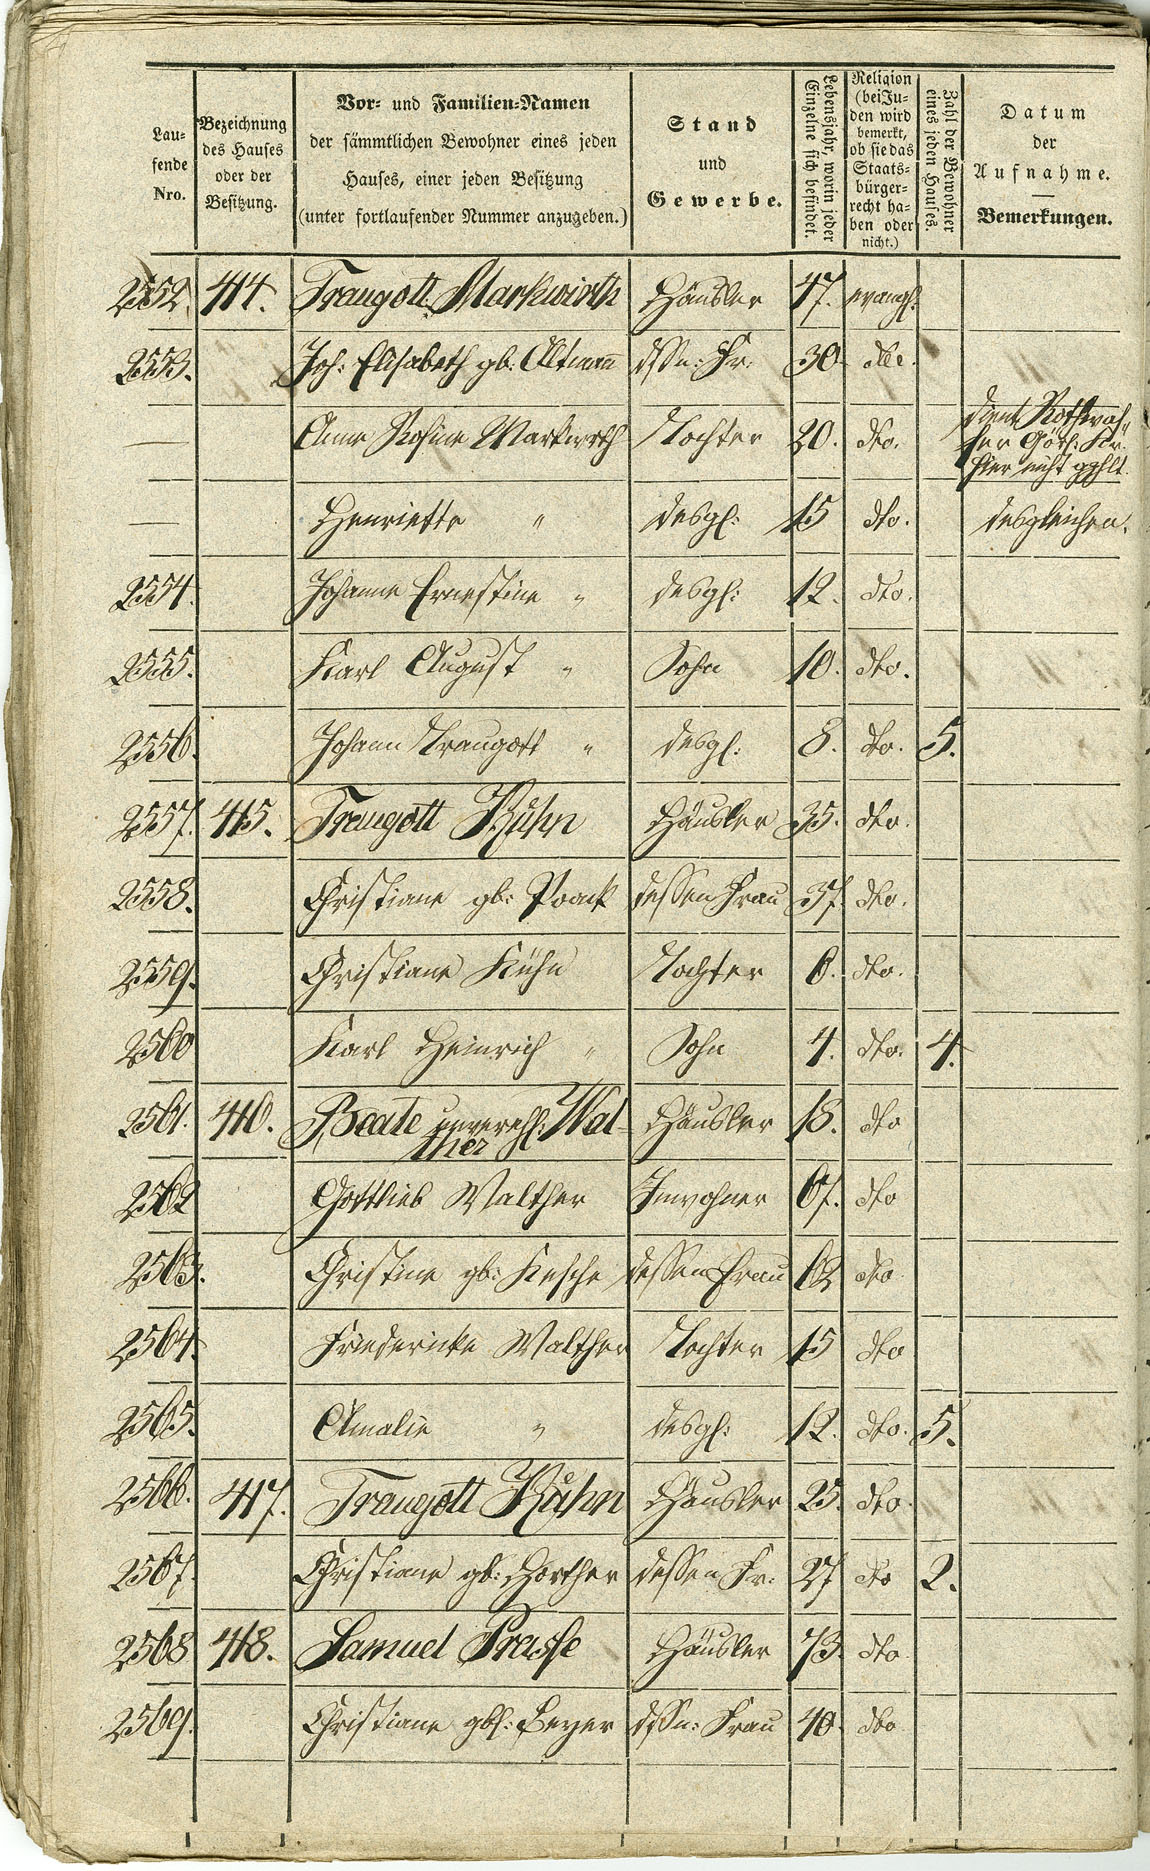 Lau-
fende
Nro.
Bezeichnung
des Hauses
oder der
Besitzung.
Vor- und Familien-Namen
der sämmtlichen Bewohner eines jeden
Hauses, einer jeden Besitzung
(unter fortlaufender Nummer anzugeben.)
Stand
und
Gewerbe.
Lebensjahr, worin jeder
Einzelne sich befindet.
Religion
(bei Ju-
den wird
bemerkt,
ob sie das
Staats-
bürger-
recht ha-
ben oder
nicht.)
Zahl der Bewohner
eines jeden Hauses.
Datum
der
Aufnahme.
Bemerkungen.
2552. 414. Traugott Markwirth Häusler 47. evangl.
2553. Joh: Elisabeth gb: Altmann dssn: Fr. 30. dto.
— Anna Rosina Markwirth Tochter 20. dto.
dient
hier nicht gzhlt.
— Henriette " desgl: 15 dto. desgleichen.
2554. Johanne Ernestine " desgl: 12. dto.
2555. Karl August " Sohn 10. dto.
2556. Johann Traugott " desgl: 8. dto. 5.
2557. 415. Traugott Kühn Häusler 35. dto.
2558. Christiane gb: dessen Frau 37. dto.
2559. Christiane Kühn Tochter 6. dto.
2560 Karl Heinrich " Sohn 4. dto. 4.
2561. 416. Beate unverehl: Wal-
ther
Häusler 18. dto
2562 Gottlieb Walther Inwohner 67. dto
2563. Christine gb: dessen Frau 62 dto
2564. Friedericke Walther Tochter 15 dto
2565. Amalie " desgl: 12. dto. 5.
2566. 417. Traugott Kühn Häusler 25. dto.
2567. Christiane gb: dessen Fr: 27 dto 2.
2568 418. Samuel Prasse Häusler 73. dto
2569. Christiane gbl: Beyer dssn: Frau 40. dto